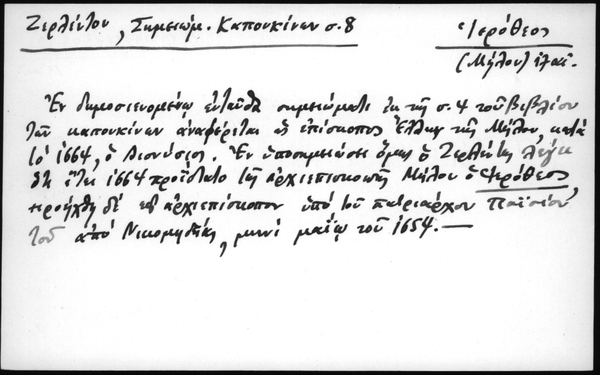 Ζερλέντου, Σημειώμ. Καπουκίνων σ. 8
Ἱερόθεος
(Μήλου)
Ἐν δημοσιευομένῳ ἐνταῦθα σημειώματι ἐκ τῆς σ. 4 τοῦ βιβλίου
τῶν καπουκίνων ἀναφέρεται ὡς ἐπίσκοπος Ἕλλην τῆς Μήλου, κατὰ
τὸ 1664, ὁ Διονύσιος. Ἐν ὑποσημειώσει ὅμως ὁ Ζερλέντης λέγει
ὅτι ἔτει 1664 προΐστατο τῆς ἀρχιεπισκοπῆς Μήλου ὁ Ἱερόθεος,
προήχθη δὲ εἰς ἀρχιεπίσκοπον ὑπὸ τοῦ πατριάρχου Παϊσίου
τοῦ ἀπὸ Νικομηδείας, μηνὶ μαΐῳ τοῦ 1654.—